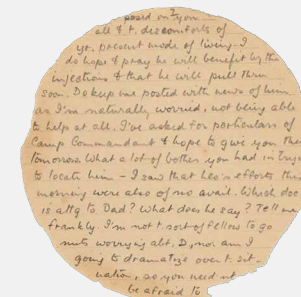 posed on you
all & t. discomforts of
yr. present mode of living. I
do hope & pray he will benefit by the
injections & that he will pull thru
soon. Do keep me posted with news of him
as I'm naturally worried, not being able
to help at all. I've asked for particulars of
Camp Commandant & hope to give you them
tomorrow. What a lot of bother you had in tryg
to locate him - I saw that Leo's efforts this
morning were also of no avail. Which doc
is attg to Dad? What does he say? Tell me
frankly. I'm not t. sort of fellow to go
nuts worrying abt. D, nor am I
going to dramatize over t. sit-
uation, so you need nt
be afraid to